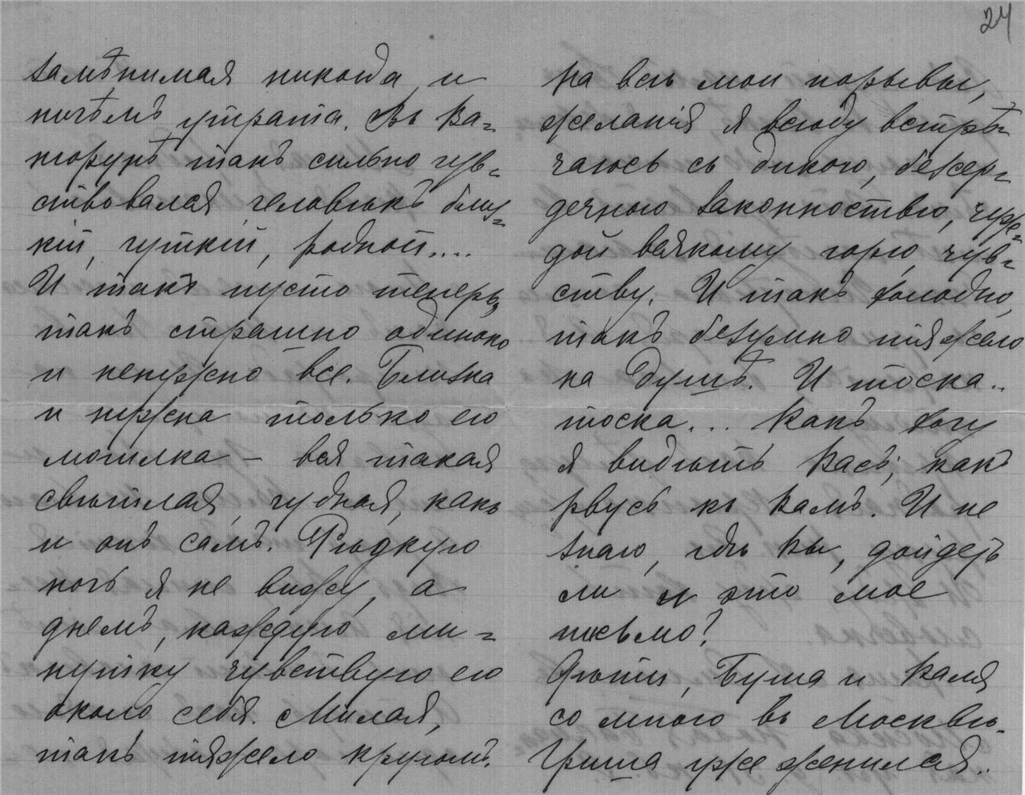 24
замѣнимая никогда и
ничѣмъ утрата. Въ Ва-
торунѣ такъ сильно чув-
ствовался человѣкъ близ-
кій, чуткій, родной....
И такъ пусто теперь,
такъ страшно одиноко
и ненужно все. Близка
и нужна только его
могилка – вся такая
свѣтлая, чудная, какъ
и онъ самъ. Рѣдкую
ночь я не вижу, а
днемъ, каждую ми-
нутку чувствую его
около себя. Милая,
такъ тяжело кругомъ.
На всѣ мои порывы,
желанія я всюду встрѣ-
чаюсь съ дикою, безсер-
дечною законностью, чуж-
дой всякому горю, чув-
ству. И такъ холодно,
такъ безумно тяжело
на душѣ. И тоска..
тоска... Какъ хочу
я видѣть Васъ, какъ
рвусь къ Вамъ. И не
знаю, гдѣ Вы, дойдетъ
ли и это мое
письмо?
Дѣти, Буша и Валя
со мною въ Москвѣ.
Гриша уже женился..